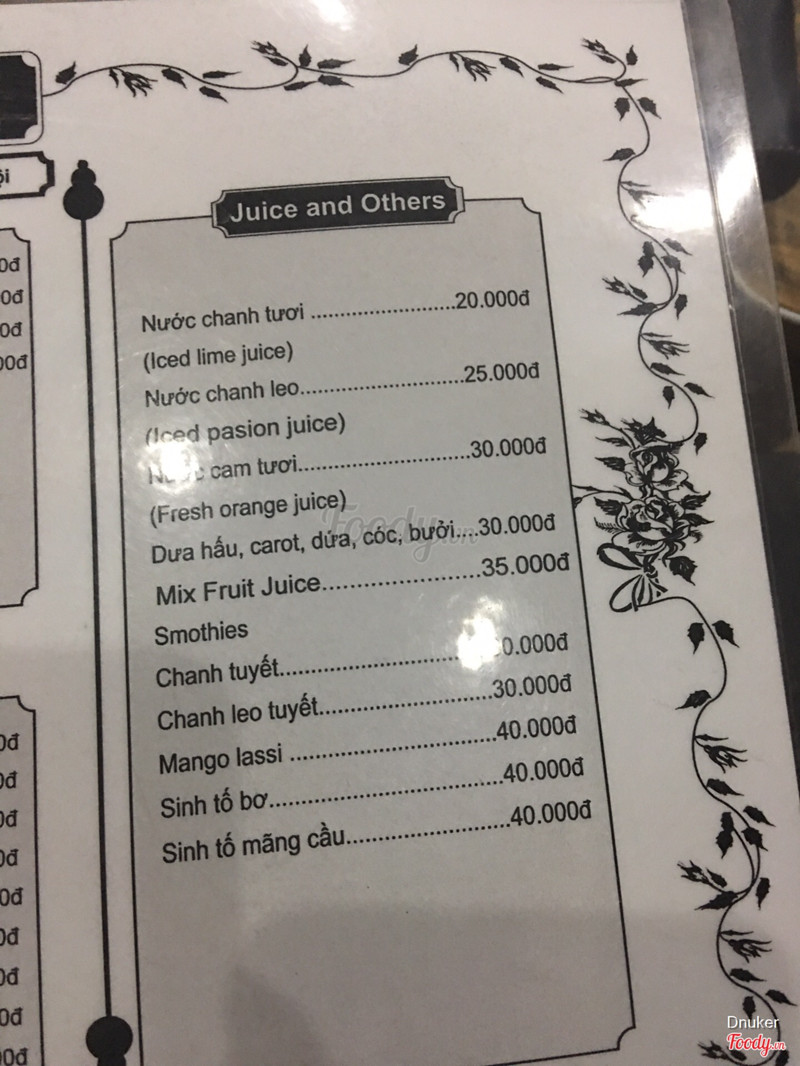 Juice and Others
Nước chanh tươi ........................20.000đ
(Iced lime juice)
Nước chanh leo...........................25.000đ
(Iced pasion juice)
cam tươi.............................30.000đ
(Fresh orange juice)
Dưa hấu, carot, dứa, cóc, bưởi....30.000đ
Mix Fruit Juice.......................35.000đ
Smothies
Chanh tuyết.............................
Chanh leo tuyết............................30.000đ
Mango lassi ..................................40.000đ
Sinh tố bơ......................................40.000đ
Sinh tố mãng cầu...........................40.000đ
Foody.vn
Dnuker
Foody.vn